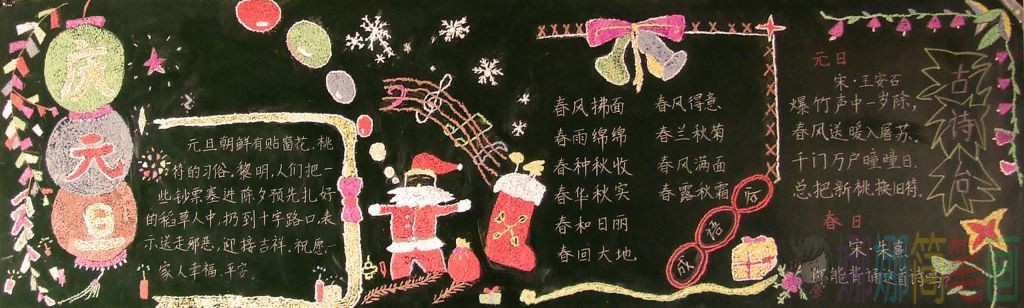 庆
元
旦
元旦朝鲜有贴窗花、桃
符的习俗。黎明，人们把一
些钞票塞进除夕预先扎好
的稻草人中，扔到十字路口，表
示送走邪恶，迎接吉祥，祝愿一
家人幸福、平安。
春风拂面 春风得意
春雨绵绵 春兰秋菊
春种秋收 春风满面
春华秋实 春露秋霜
春和日丽
春回大地
成
语
元日
宋·王安石
爆竹声中一岁除，
春风送暖入屠苏。
千门万户曈曈日，
总把新桃换旧符。
春日
宋·朱熹
你能背诵这首诗吗
古
诗
台